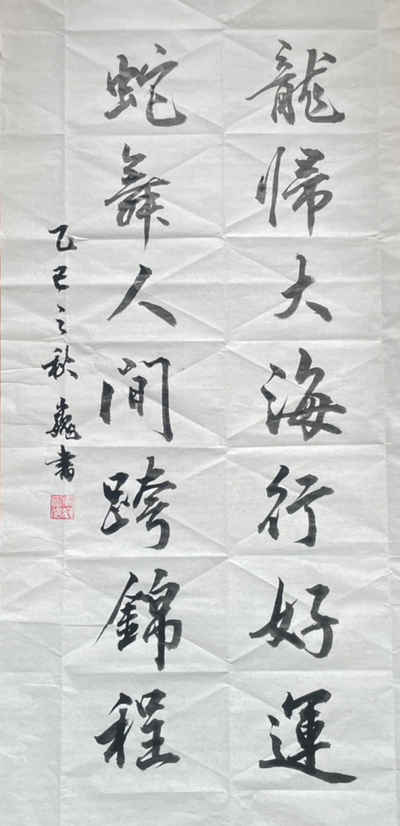 龍歸大海行好運
蛇舞人間跨錦程
乙巳之秋巍書